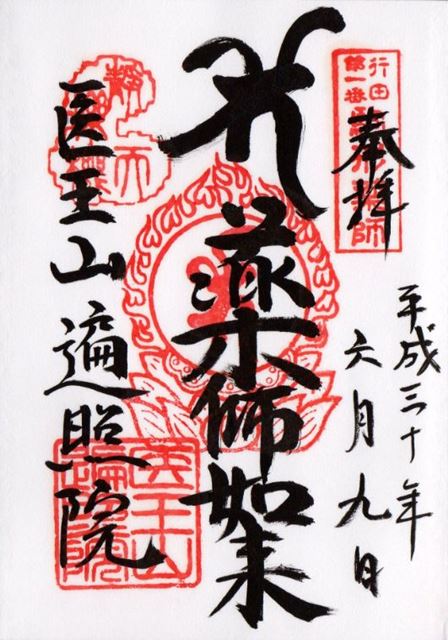 奉拝
平成三十年
六月九日
薬師如来
医王山遍照院
行田
第一番
医王山